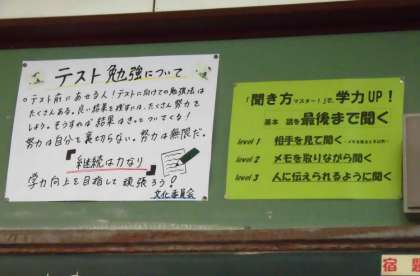 テスト勉強について
○テスト前にあせる人！テストに向けての勉強法は
たくさんある。良い結果を残すには、たくさん努力を
しよう。そうすれば結果はきっとついてくる！
努力は自分を裏切らない。努力は無限だ。
『継続は力なり』
学力向上を目指して頑張ろう！
文化委員会
「聞き方マスター！」で、学力UP！
基本 話を最後まで聞く
level 1 相手を見て聞く
level 2 メモを取りながら聞く
level 3 人に伝えられるように聞く
宿